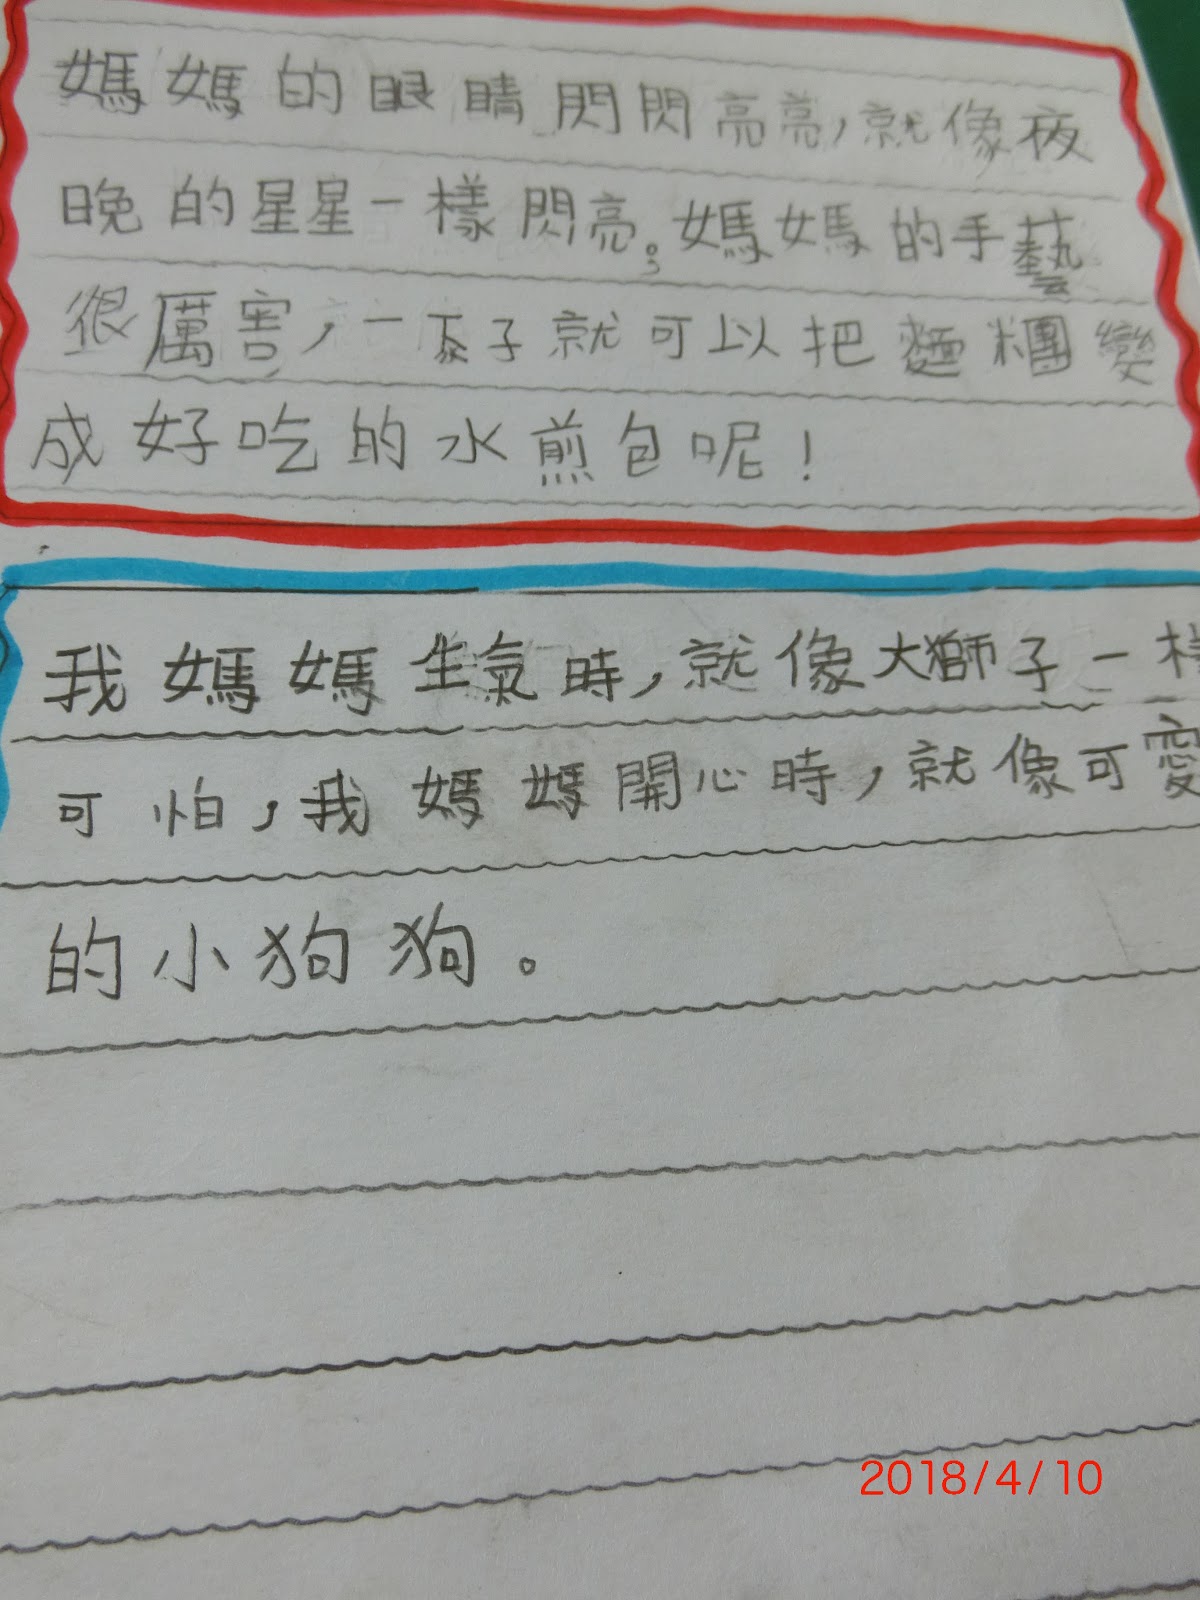 媽媽的眼睛閃閃亮亮,就像夜
晚的星星一樣閃亮。媽媽的手藝
很厲害,一下子就可以把麵糰變
成好吃的水煎包呢!
我媽媽生氣時,就像大獅子一樣
可怕,我媽媽開心時,就像可愛
的小狗狗。
2018/4/10